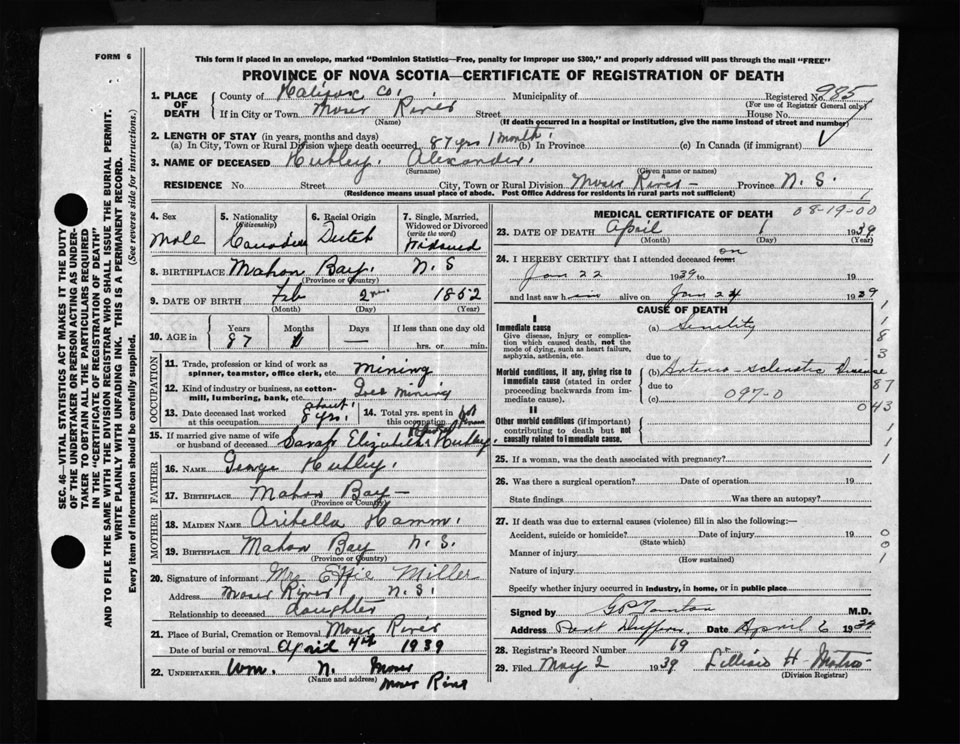 FORM 6
This form if placed in an envelope, marked "Dominion Statistics—Free, penalty for improper use $300," and properly addressed will pass through the mail "FREE"
PROVINCE OF NOVA SCOTIA—CERTIFICATE OF REGISTRATION OF DEATH
SEC. 46—VITAL STATISTICS ACT MAKES IT THE DUTY
OF THE UNDERTAKER OR PERSON ACTING AS UNDER-
TAKER TO OBTAIN ALL THE PARTICULARS REQUIRED
IN THE "CERTIFICATE OF REGISTRATION OF DEATH"
AND TO FILE THE SAME WITH THE DIVISION REGISTRAR WHO SHALL ISSUE THE BURIAL PERMIT.
WRITE PLAINLY WITH UNFADING INK. THIS IS A PERMANENT RECORD.
Every item of information should be carefully supplied. (See reverse side for instructions.)
1. PLACE OF DEATH
County of Halifax Co. Municipality of Registered No. 985
(For use of Registrar General only)
If in City or Town Moser River Street House No.
(Name) (If death occurred in a hospital or institution, give the name instead of street and number)
2. LENGTH OF STAY (in years, months and days)
(a) In City, Town or Rural Division where death occurred 87 yrs 1 month. (b) In Province (c) In Canada (if immigrant)
3. NAME OF DECEASED Hubley. Alexander.
(Surname) (Given name or names)
RESIDENCE No Street City, Town or Rural Division Moser River— Province N. S.
(Residence means usual place of abode. Post Office Address for residents in rural parts not sufficient)
4. Sex Male
5. Nationality (Citizenship) Canadian
6. Racial Origin Dutch
7. Single, Married, Widowed or Divorced (write the word) Widowed
8. BIRTHPLACE Mahon Bay. N. S
(Province or Country)
9. DATE OF BIRTH Feb 2nd 1852
(Month) (Day) (Year)
10. AGE in Years 87 Months 1 Days — If less than one day old hrs. or min.
OCCUPATION
11. Trade, profession or kind of work as spinner, teamster, office clerk, etc. mining
12. Kind of industry or business, as cotton-mill, lumbering, bank, etc. Gold Mining
13. Date deceased last worked at this occupation about 8 yrs.
14. Total yrs. spent in this occupation
15. If married give name of wife or husband of deceased Sarah Elizabeth Hubley.
FATHER
16. NAME George Hubley.
17. BIRTHPLACE Mahon Bay—
(Province or Country)
MOTHER
18. MAIDEN NAME Aribella Hamm.
19. BIRTHPLACE Mahon Bay N. S.
(Province or Country)
20. Signature of informant Mrs Effie Miller
Address Moser River N. S.
Relationship to deceased daughter
21. Place of Burial, Cremation or Removal Moser River
Date of burial or removal April 4th 1939
22. UNDERTAKER Wm. N. Moser
(Name and address)
Moser River
MEDICAL CERTIFICATE OF DEATH 08-19-00
23. DATE OF DEATH April 1 1939
(Month) (Day)
24. I HEREBY CERTIFY that I attended deceased from: on
Jan 22 1939 to 19
and last saw him alive on Jan 24 1939
CAUSE OF DEATH
I
Immediate cause
Give disease, injury or complication which caused death, not the mode of dying, such as heart failure, asphyxia, asthenia, etc.
(a) Senility
due to
Morbid conditions, if any, giving rise to immediate cause (stated in order proceeding backwards from immediate cause).
(b) Arterio-Sclerotic Disease
due to
(c) 097-0
II
Other morbid conditions (if important) contributing to death but not causally related to immediate cause.
1
1
8
3
87
043
1
1
1
25. If a woman, was the death associated with pregnancy?
26. Was there a surgical operation? Date of operation 19
State findings Was there an autopsy?
27. If death was due to external causes (violence) fill in also the following:—
Accident, suicide or homicide? Date of injury 19
(State which)
Manner of injury
(How sustained)
Nature of injury
0
0
1
Specify whether injury occurred in industry, in home, or in public place
Signed by M.D.
Address Port Dufferin Date April 6 1939
28. Registrar's Record Number 19
29. Filed May 2 1939 Lillian H.
(Division Registrar)